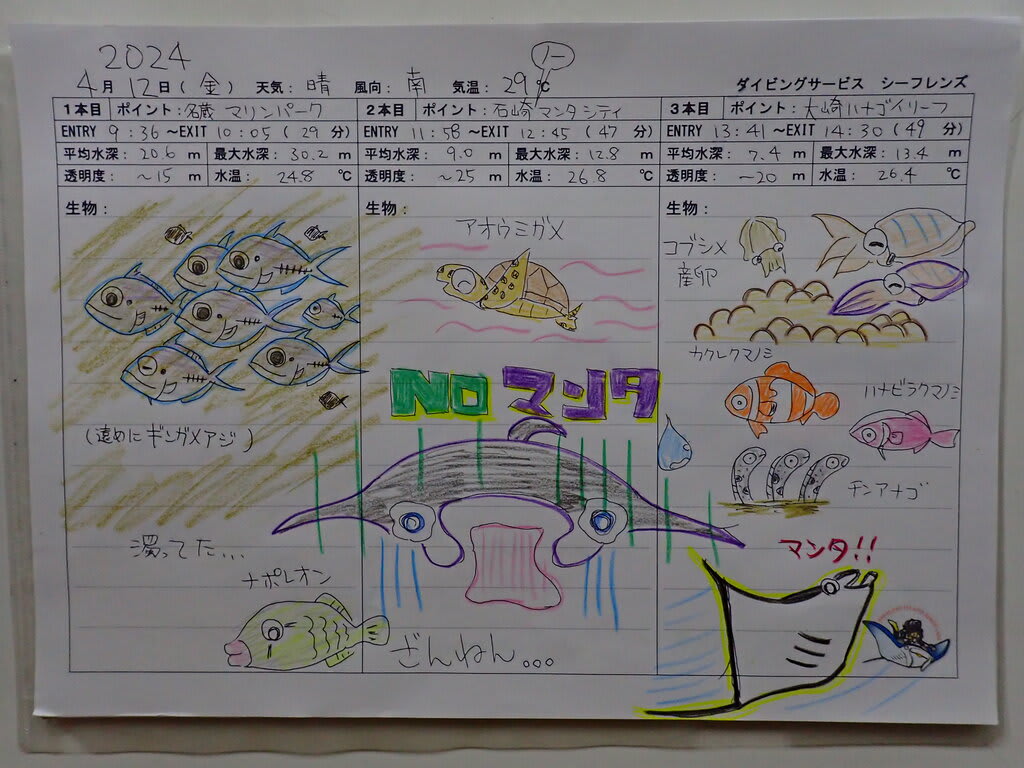 2024
4月 12日 (金) 天気: 晴 風向: 南 気温: 29℃
ダイビングサービス シーフレンズ
1本目 ポイント: 名蔵 マリンパーク
ENTRY 9:36 ~EXIT 10:05 (29 分)
平均水深: 20.6 m 最大水深: 30.2 m
透明度: ~15 m 水温: 24.8 ℃
生物:
(遠めにギンガメアジ)
濁ってた...
ナポレオン
2本目 ポイント: 石崎マンタシティ
ー
ENTRY 11:58 ~EXIT 12:45 (47 分)
平均水深: 9.0 m 最大水深: 12.8 m
透明度: ~25 m 水温: 26.8 ℃
生物:
アオウミガメ
NO マンタ
ざんねん。。。
3本目 ポイント: 大崎ハナゴイリーフ
ENTRY 13:41 ~EXIT 14:30 (49 分)
平均水深: 7.4 m 最大水深: 13.4 m
透明度: ~20 m 水温: 26.4 ℃
生物:
コブシメ
産卵
カクレクマノミ
ハナビラクマノミ
チンアナゴ
マンタ!!